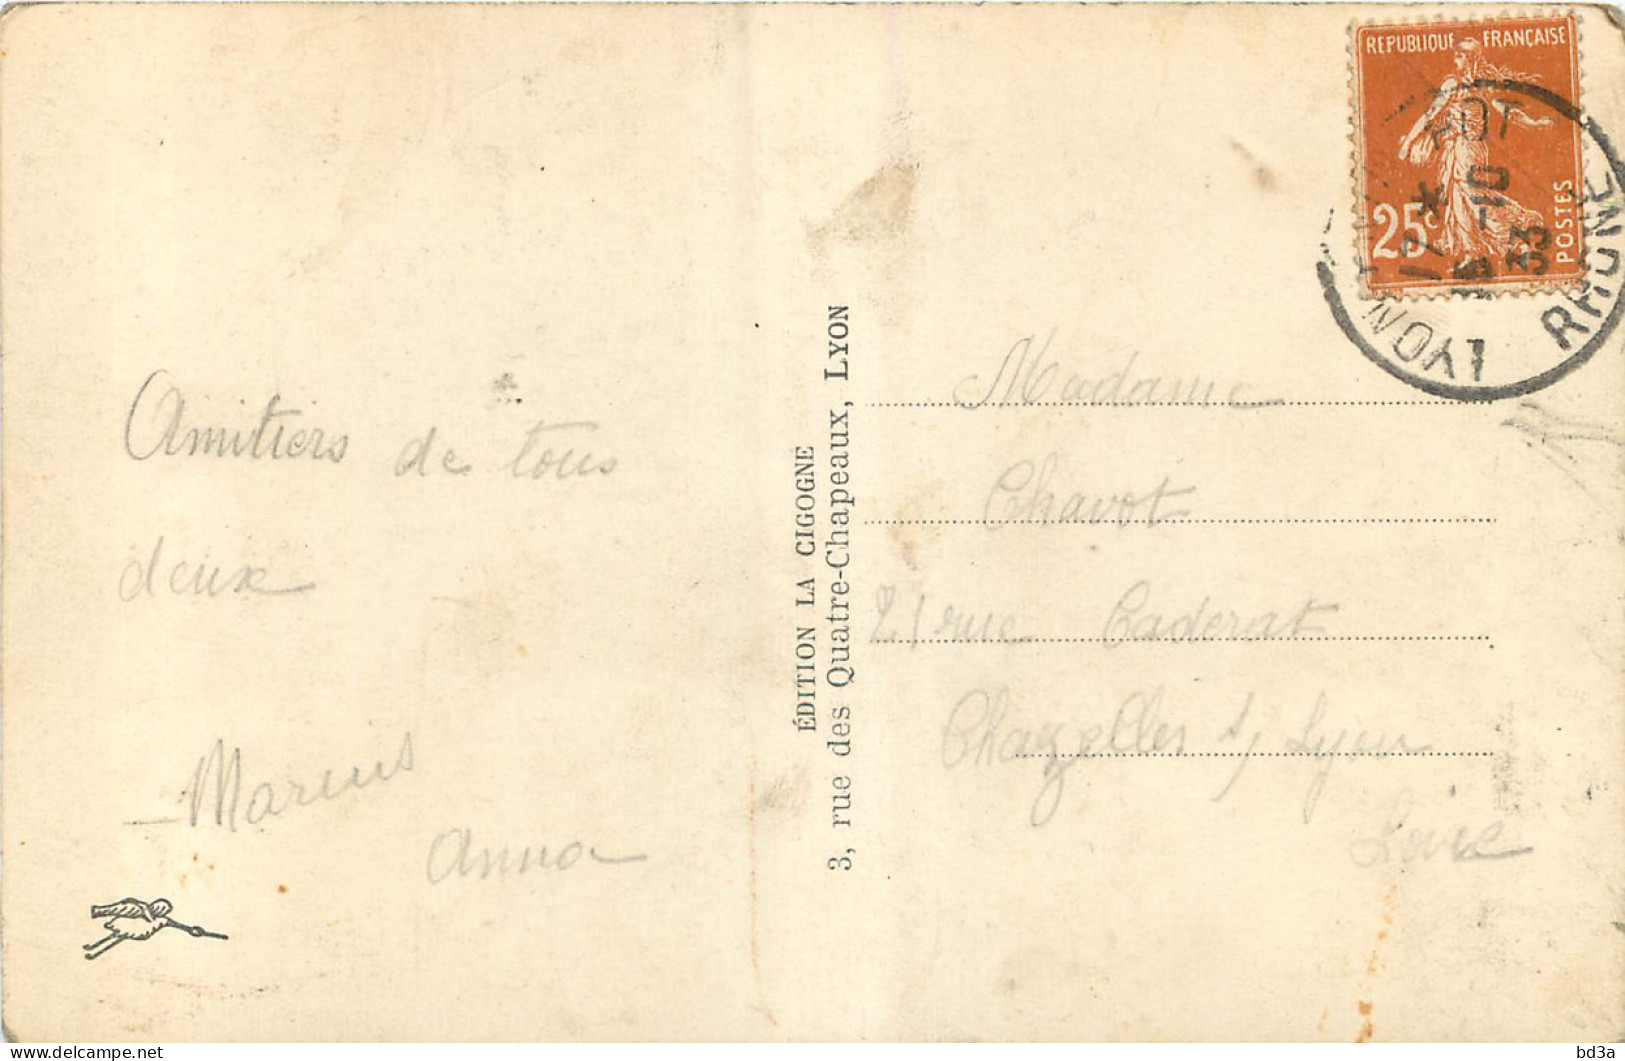 REPUBLIQUE FRANÇAISE
25c
POSTES
LYON
RHONE
17 *
-10
33
Amitiers de tous
deux
Marius
Anna
ÉDITION LA CIGOGNE
3, rue des Quatre-Chapeaux, LYON
Madame
Chavot
21 rue Caderat
Chazelles s/ Lyon
Loire
bd3a